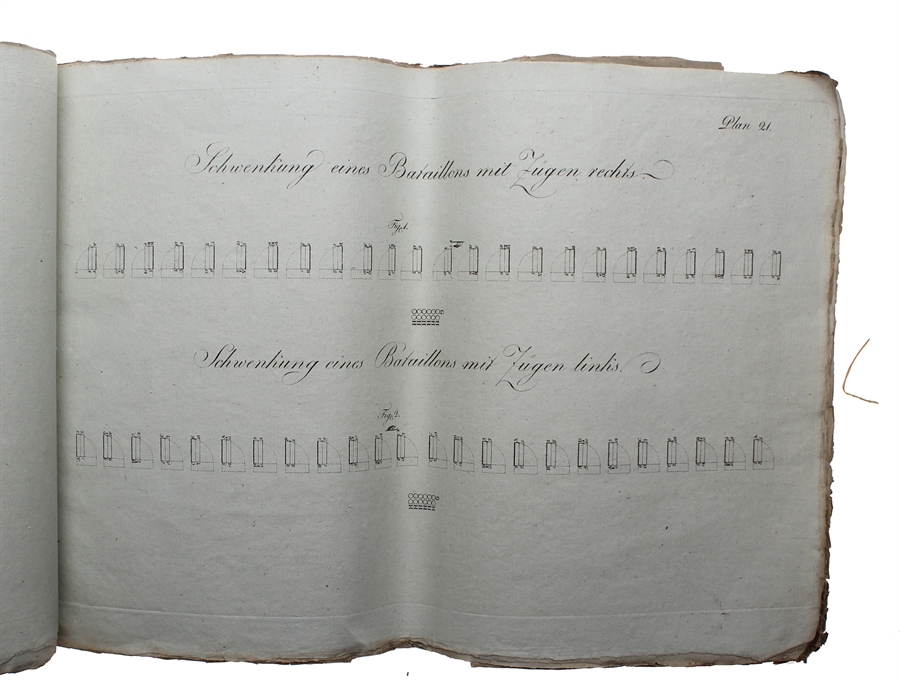 Plan 21.
Schwenkung eines Bataillons mit Zügen rechts.
Fig. 1.
Schwenkung eines Bataillons mit Zügen links.
Fig. 2.